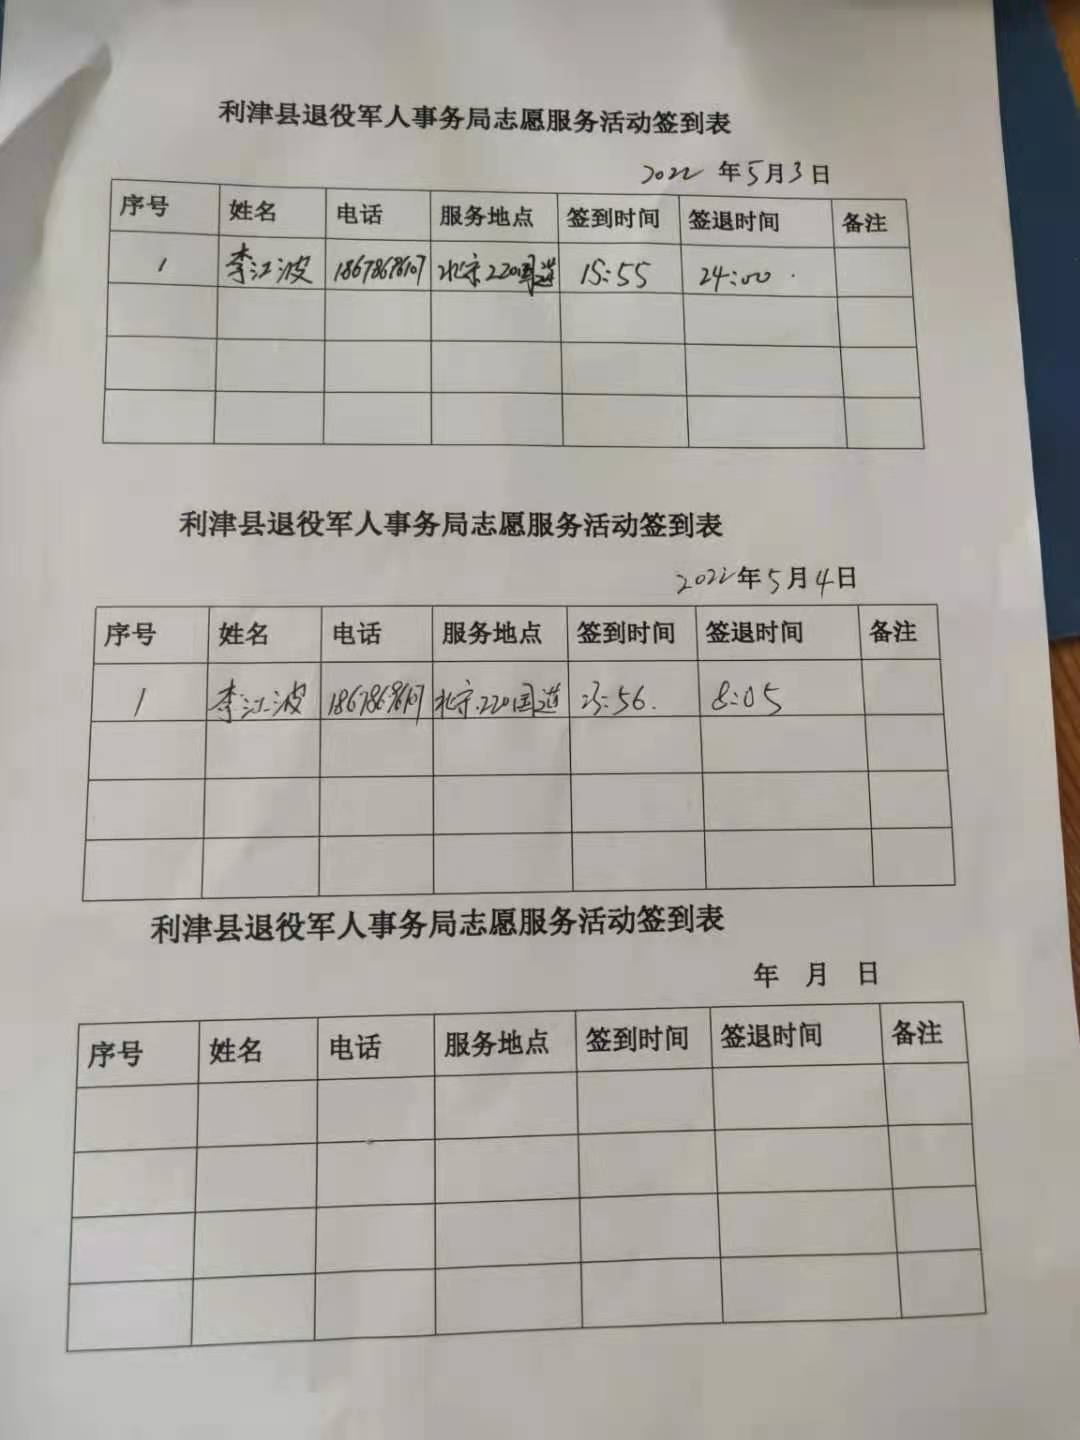 利津县退役军人事务局志愿服务活动签到表
2022 年5月3日
序号 姓名 电话 服务地点 签到时间 签退时间 备注
1 李江波 北宋220国道 15:55 24:00
利津县退役军人事务局志愿服务活动签到表
2022年5月4日
序号 姓名 电话 服务地点 签到时间 签退时间 备注
1 李江波 北宋.220国道 23:56. 8:05
利津县退役军人事务局志愿服务活动签到表
年 月 日
序号 姓名 电话 服务地点 签到时间 签退时间 备注